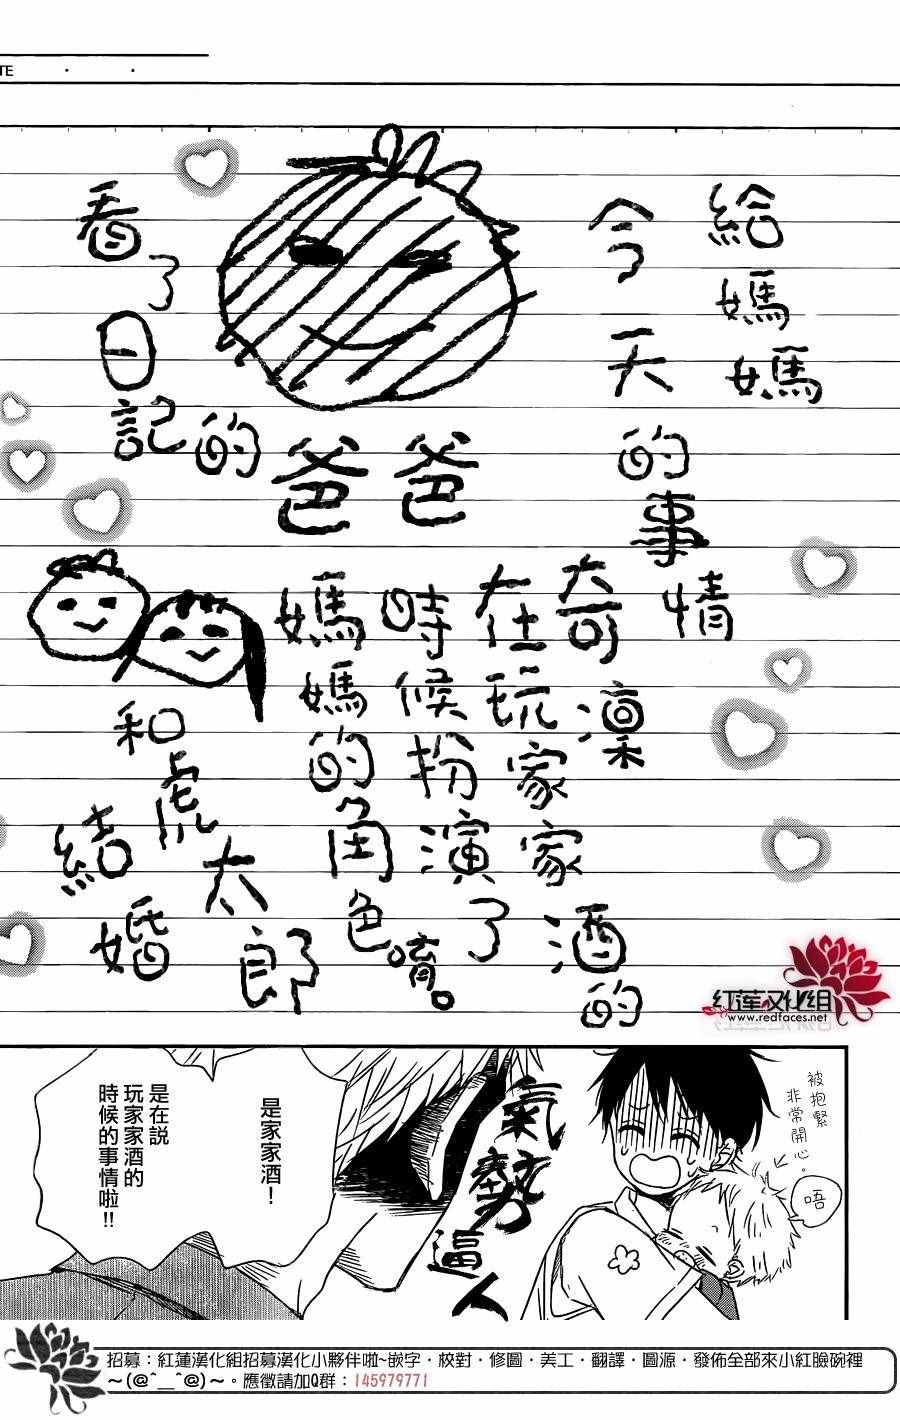 TE
給媽媽
今天的事情
奇凜
在玩家家酒的
時候扮演了
媽媽的角色唷。
看了日記的
爸爸
和虎太郎
結婚
紅蓮文化組
www.redfaces.net
被抱緊
非常開心。
唔
氣勢逼人
是家家酒！
是在說
玩家家酒的
時候的事情啦!!
招募：紅蓮漢化組招募漢化小夥伴啦~嵌字・校對・修圖・美工・翻譯・圖源・發佈全部來小紅臉碗裡
～(@^__^@)～。應徵請加Q群：145979771